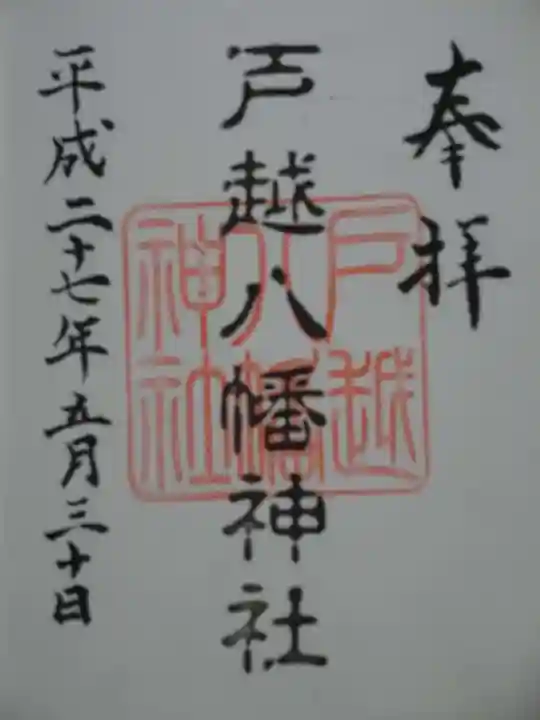 奉拝
戸越八幡神社
平成二十七年五月三十日
戸越
八幡
神社